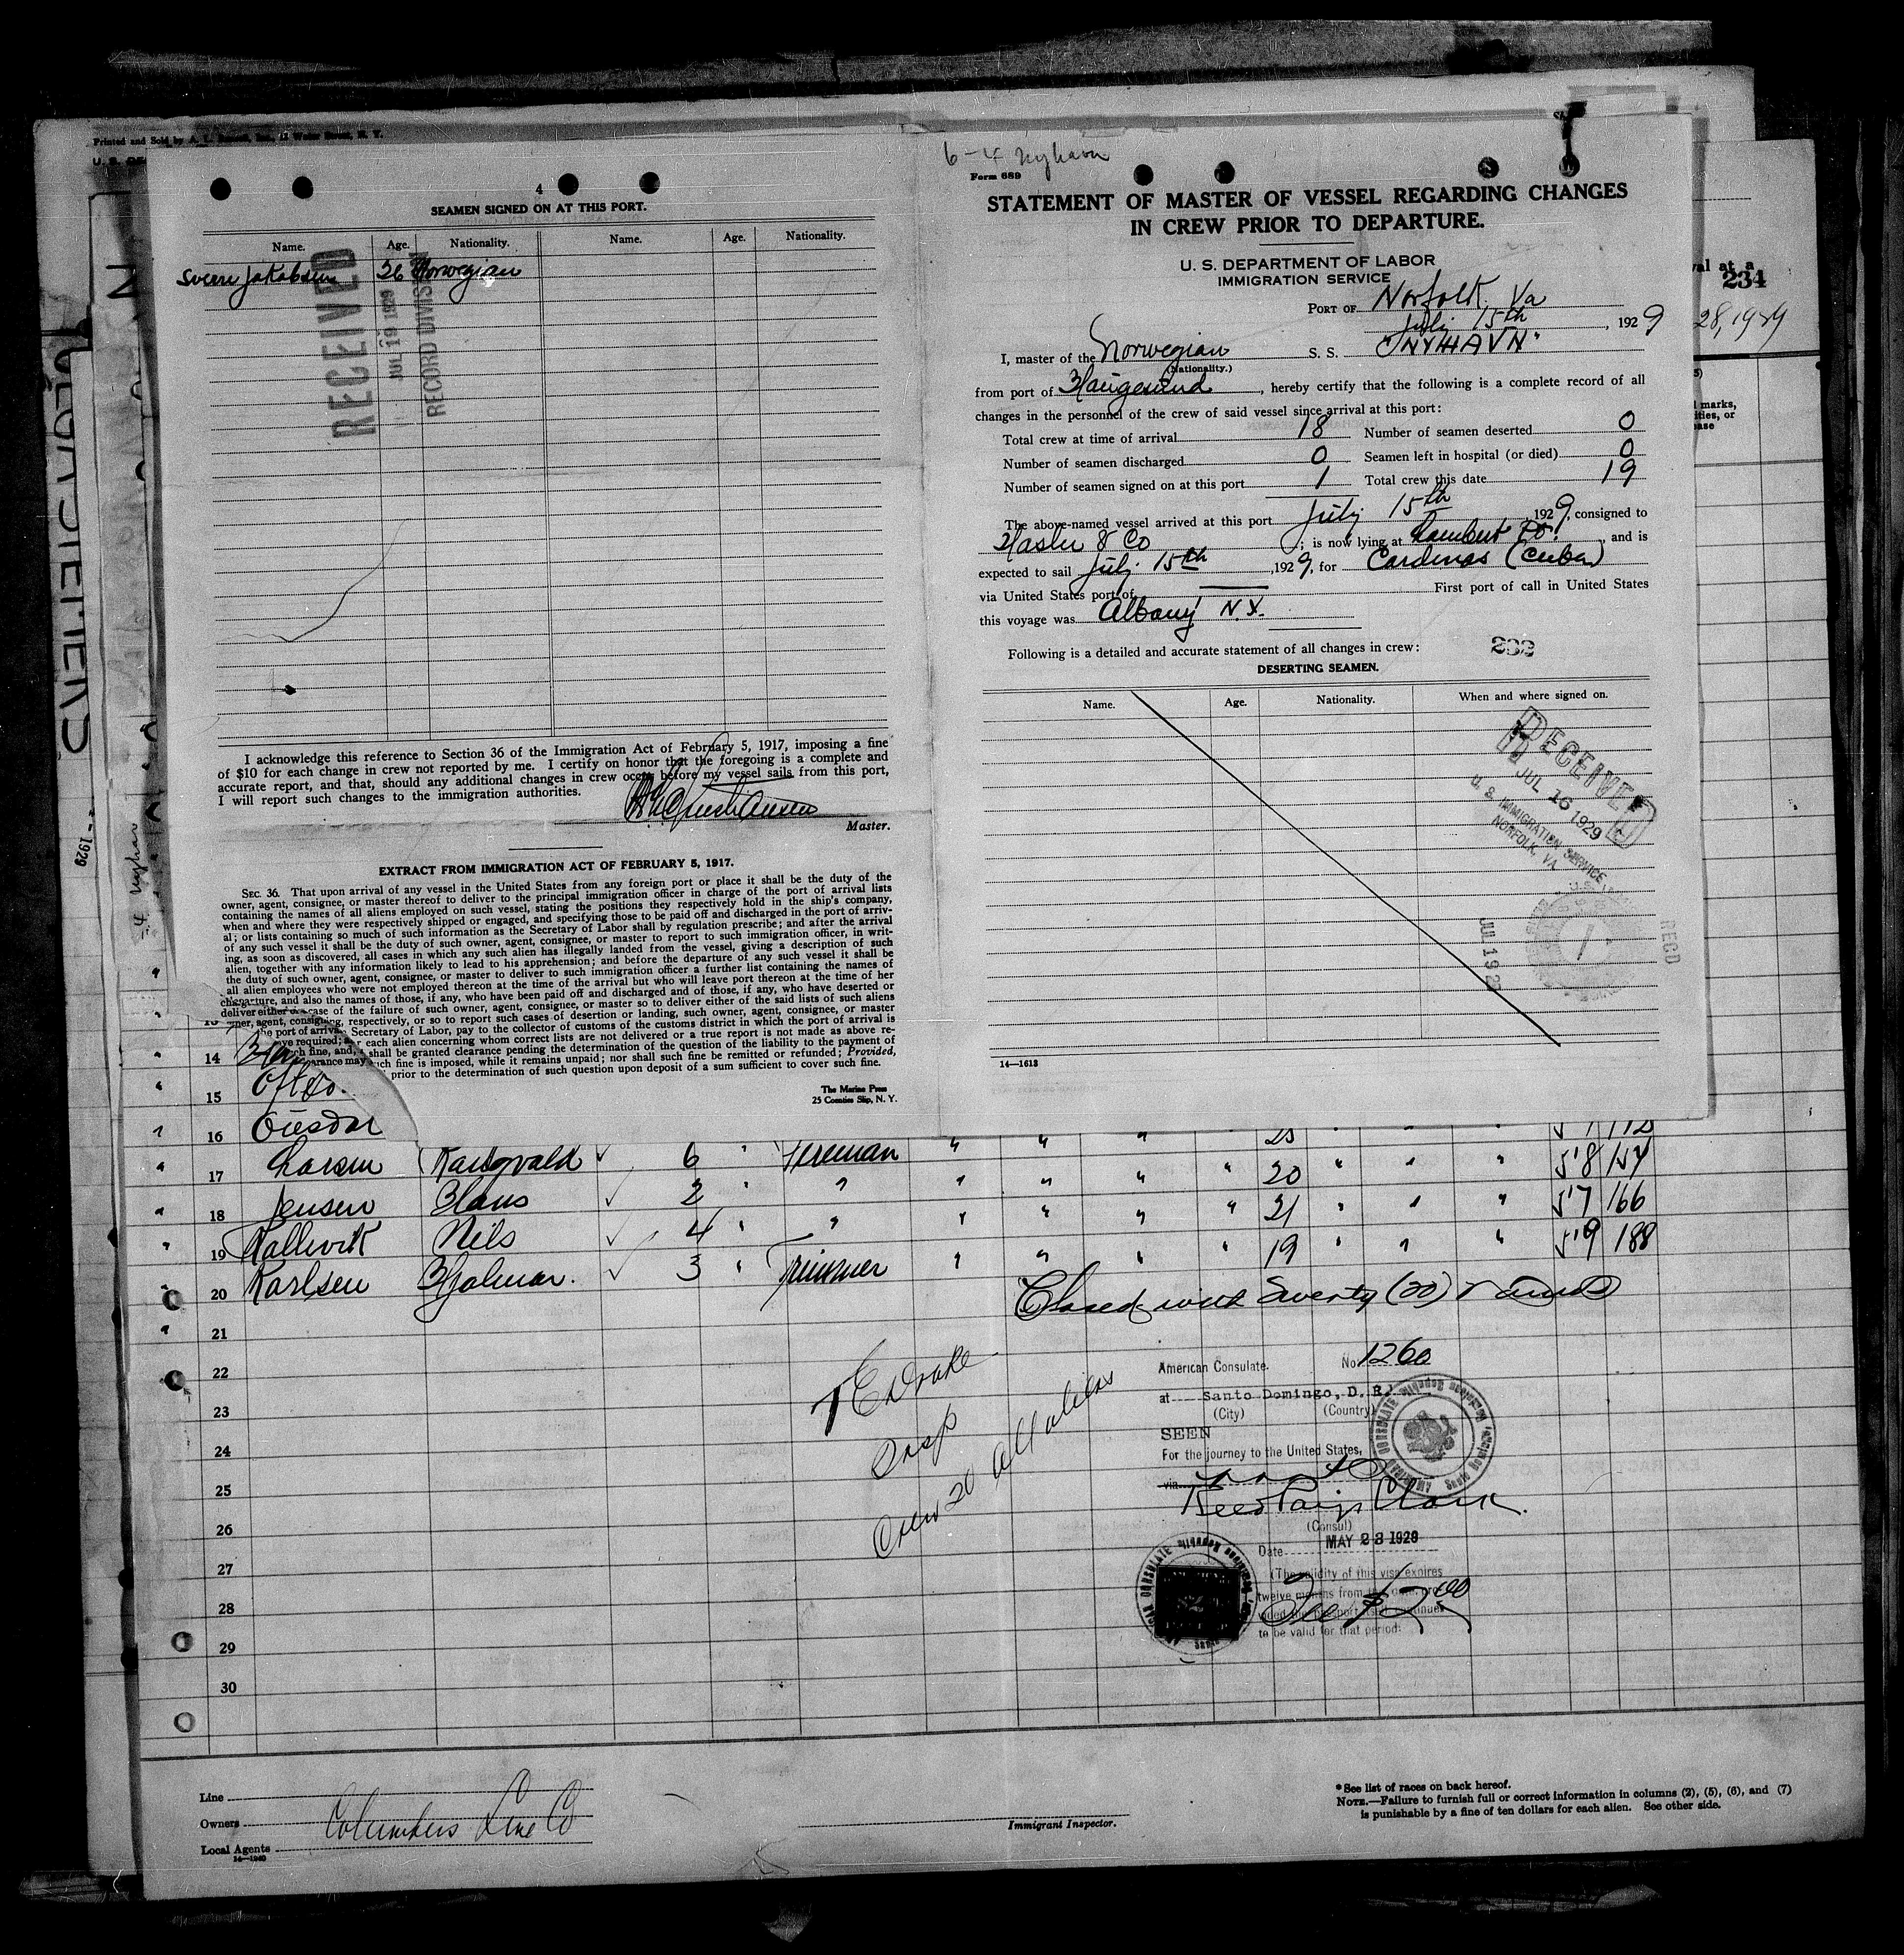 Printed and Sold by
Water Street, N. Y.
4
SEAMEN SIGNED ON AT THIS PORT.
Name. Age. Nationality. Name. Age. Nationality.
Sverre Jakobsen 26 Norwegian
RECEIVED
JUL 19 1929
RECORD DIVISION
I acknowledge this reference to Section 36 of the Immigration Act of February 5, 1917, imposing a fine
of $10 for each change in crew not reported by me. I certify on honor that the foregoing is a complete and
accurate report, and that, should any additional changes in crew occur before my vessel sails from this port,
I will report such changes to the immigration authorities.
Master.
EXTRACT FROM IMMIGRATION ACT OF FEBRUARY 5, 1917.
SEC. 36. That upon arrival of any vessel in the United States from any foreign port or place it shall be the duty of the
owner, agent, consignee, or master thereof to deliver to the principal immigration officer in charge of the port of arrival lists
containing the names of all aliens employed on such vessel, stating the positions they respectively hold in the ship's company,
when and where they were respectively shipped or engaged, and specifying those to be paid off and discharged in the port of arriv-
al; or lists containing so much of such information as the Secretary of Labor shall by regulation prescribe; and after the arrival
of any such vessel it shall be the duty of such owner, agent, consignee, or master to report to such immigration officer, in writ-
ing, as soon as discovered, all cases in which any such alien has illegally landed from the vessel, giving a description of such
alien, together with any information likely to lead to his apprehension; and before the departure of any such vessel it shall be
the duty of such owner, agent, consignee, or master to deliver to such immigration officer a further list containing the names of
all alien employees who were not employed thereon at the time of the arrival but who will leave port thereon at the time of her
departure, and also the names of those, if any, who have been paid off and discharged and of those, if any, who have deserted or
case of the failure of such owner, agent, consignee, or master so to deliver either of the said lists of such aliens
respectively, or so to report such cases of desertion or landing, such owner, agent, consignee, or master
Secretary of Labor, pay to the collector of customs of the customs district in which the port of arrival is
each alien concerning whom correct lists are not delivered or a true report is not made as above re-
shall be granted clearance pending the determination of the question of the liability to the payment of
such fine is imposed, while it remains unpaid; nor shall such fine be remitted or refunded; Provided,
prior to the determination of such question upon deposit of a sum sufficient to cover such fine.
The Marine Press
25 Coenties Slip, N. Y.
6-4 Nyhavn
Form 689
STATEMENT OF MASTER OF VESSEL REGARDING CHANGES
IN CREW PRIOR TO DEPARTURE.
U. S. DEPARTMENT OF LABOR
IMMIGRATION SERVICE
PORT OF Norfolk Va
July 15th, 1929
I, master of the Norwegian S. S. "NYHAVN"
(Nationality.)
from port of Haugesund, hereby certify that the following is a complete record of all
changes in the personnel of the crew of said vessel since arrival at this port:
Total crew at time of arrival 18 Number of seamen deserted 0
Number of seamen discharged 0 Seamen left in hospital (or died) 0
Number of seamen signed on at this port 1 Total crew this date 19
The above-named vessel arrived at this port July 15th, 1929, consigned to
Hasler & Co; is now lying at Lambert Pt., and is
expected to sail July 15th, 1929, for Cardenas (Cuba)
via United States port of First port of call in United States
this voyage was Albany N.Y.
Following is a detailed and accurate statement of all changes in crew: 233
DESERTING SEAMEN.
Name. Age. Nationality. When and where signed on.
RECEIVED
JUL 16 1929
U. S. IMMIGRATION SERVICE
NORFOLK, VA.
RECD
14—1613
234
28, 1929
marks,
14
15
16
17 Larsen Rangvald 6 " Fireman " " " " 20 " " " 5'8 154
18 Jensen Hans 2 " " " " " " 21 " " " 5'7 166
19 Kallevik Nils 4 " " " " " " 19 " " " 5'9 188
20 Karlsen Hjalmar. 3 " Trimmer
21
22
23
24
25
26
27
28
29
30
Closed with Twenty (20) names
T E Drake
Insp
Crew 20 all aliens
American Consulate. No. 1260
at Santo Domingo, D. R.
(City) (Country)
SEEN
For the journey to the United States,
via
Reed Paige Clark.
(Consul)
Date MAY 23 1929
(The validity of this visa expires
twelve months from
to be valid for that period.
Fee $2.00
Line
Owners
Local Agents
Columbus Line Co
14—1240
Immigrant Inspector.
*See list of races on back hereof.
NOTE.—Failure to furnish full or correct information in columns (2), (5), (6), and (7)
is punishable by a fine of ten dollars for each alien. See other side.